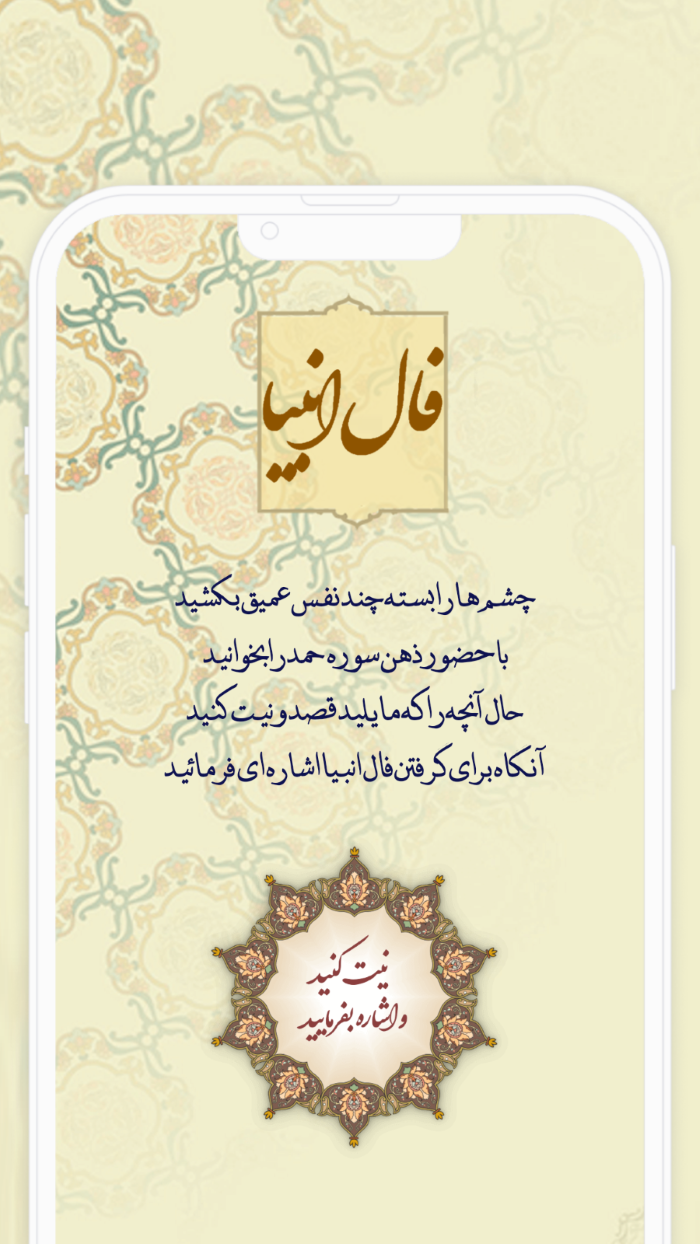 فال انبیا
چشم‌ها را بسته چند نفس عمیق بکشید
با حضور ذهن سوره حمد را بخوانید
حال آنچه را که مایلید قصد و نیت کنید
آنگاه برای گرفتن فال انبیا اشاره‌ای فرمائید
نیت کنید
و اشاره بفرمایید